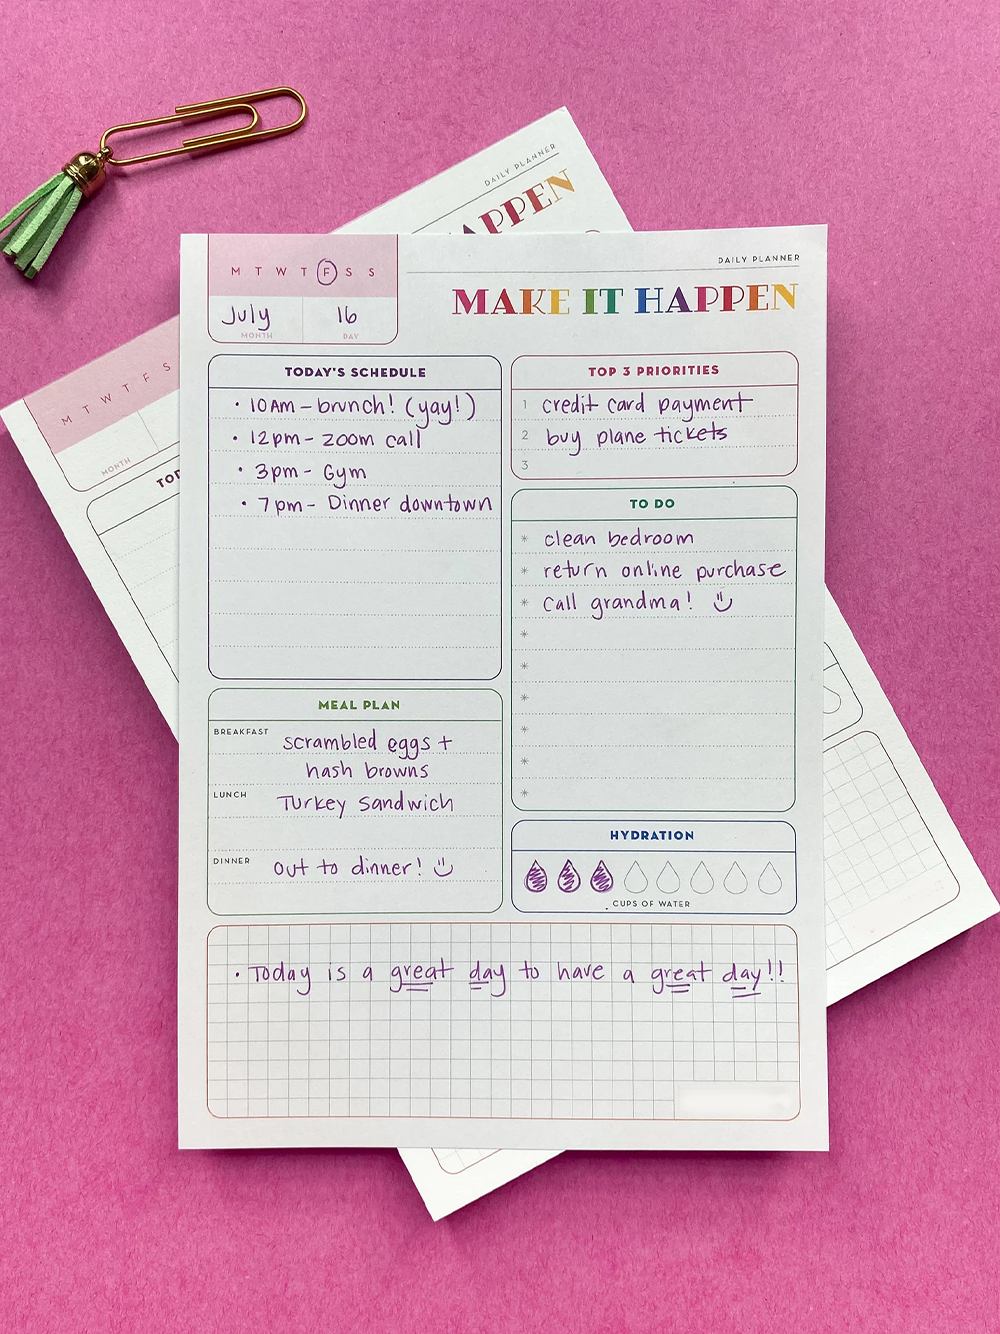 DAILY PLANNER
HAPPEN
M T W T F S S
MONTH
TOD
M T W T F S S
July 16
MONTH DAY
DAILY PLANNER
MAKE IT HAPPEN
TODAY'S SCHEDULE
• 10AM – brunch! (yay!)
• 12pm – zoom call
• 3pm – Gym
• 7pm – Dinner downtown
TOP 3 PRIORITIES
1 credit card payment
2 buy plane tickets
3
TO DO
* clean bedroom
* return online purchase
* call grandma! :)
*
*
*
*
*
*
MEAL PLAN
BREAKFAST scrambled eggs +
hash browns
LUNCH Turkey sandwich
DINNER out to dinner! :)
HYDRATION
CUPS OF WATER
• Today is a great day to have a great day!!